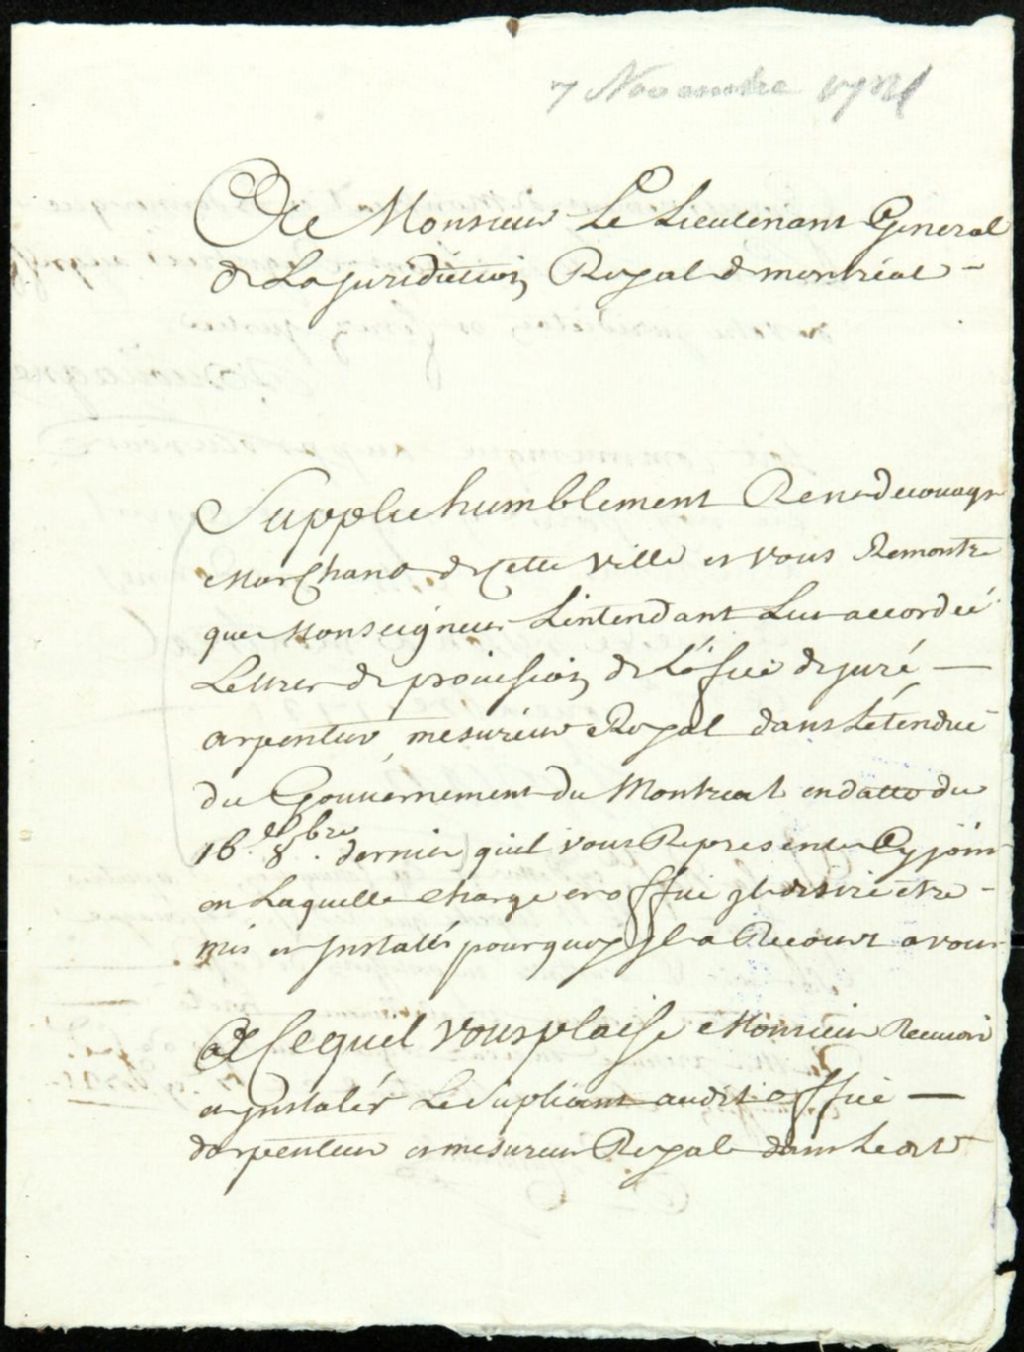 7 Novembre
A Monsieur Le Lieutenant General
de La Juridiction Royal de montréal
Supplie humblement Rene decouagne
Marchand de Cette Ville et vous Remontre
que Monseigneur Lintendant Luy a accordeé
Lettres de provission de L'ofice de juré
arpenteur mesureur Royal dans L'étendue
du Gouvernement du Montreal en datte du
16e 8bre dernier quil vous Represente Cy joint
en Laquelle charge et office jl desire être
mis et jnstalés pourquoy jl a Recourt a vous
A Ce quil vous plaise Monsieur Recevoir
et jnstalér Le Supliant audit office
darpenteur et mesureur Royal dans